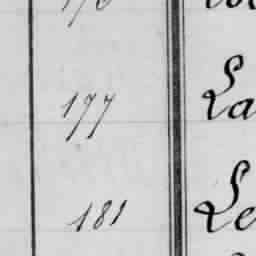 177 La
181 Le